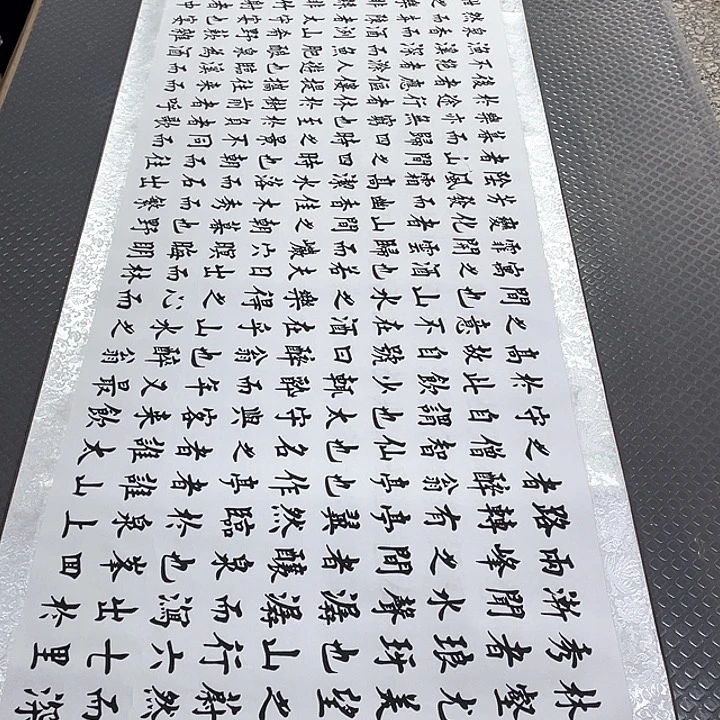 林壑尤美望之蔚然而深
秀者琅琊也山行六七里
漸聞水聲潺潺而瀉出於
兩峰之間者釀泉也峯回
路轉有亭翼然臨於泉上
者醉翁亭也作亭者誰山
之僧智仙也名之者誰太
守自謂也太守與客來飲
於此飲少輒醉而年又最
高故自號曰醉翁也醉翁
之意不在酒在乎山水之
間也山水之樂得之心而
寓之酒也若夫日出而林
霏開而雲歸而巖穴暝晦明
變化者山間之朝暮也野
芳發而幽香佳木秀而繁
陰風霜高潔水落而石出
者山間之四時也朝而往
暮而歸四時之景不同而
樂亦無窮也至於負者歌
於途行者休於樹前者呼
後者應傴僂提攜往來而
不絕者滁人遊也臨溪而
漁溪深而魚肥釀泉為酒
泉香而酒洌山肴野蔌雜